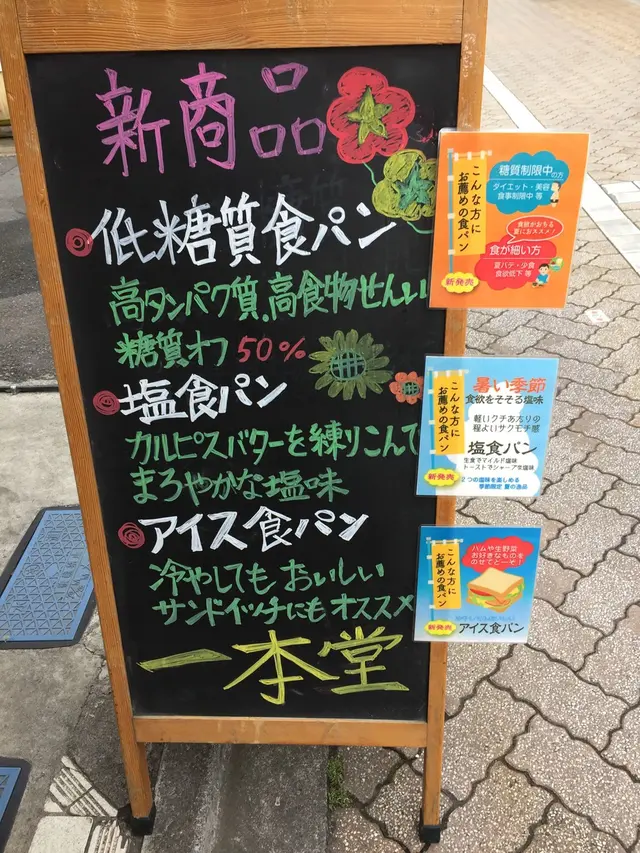 新商品
低糖質食パン
高タンパク質.高食物せんい
糖質オフ50%
塩食パン
カルピスバターを練りこんで
まろやかな塩味
アイス食パン
冷やしてもおいしい
サンドイッチにもオススメ
一本堂
こんな方に
お薦めの食パン
新発売
糖質制限中の方
ダイエット・美容
食事制限中 等
食欲がおちる
夏におススメ!
食が細い方
夏バテ・少食
食欲低下 等
こんな方に
お薦めの食パン
新発売
暑い季節
食欲をそそる塩味
軽いクチあたりの
程よいサクモチ感
塩食パン
生食でマイルド塩味
トーストでジャープな塩味
2つの塩味を楽しめる
季節限定 夏の逸品
こんな方に
お薦めの食パン
新発売
ハムや生野菜
お好きなものを
のせてどーぞ!
アイス食パン